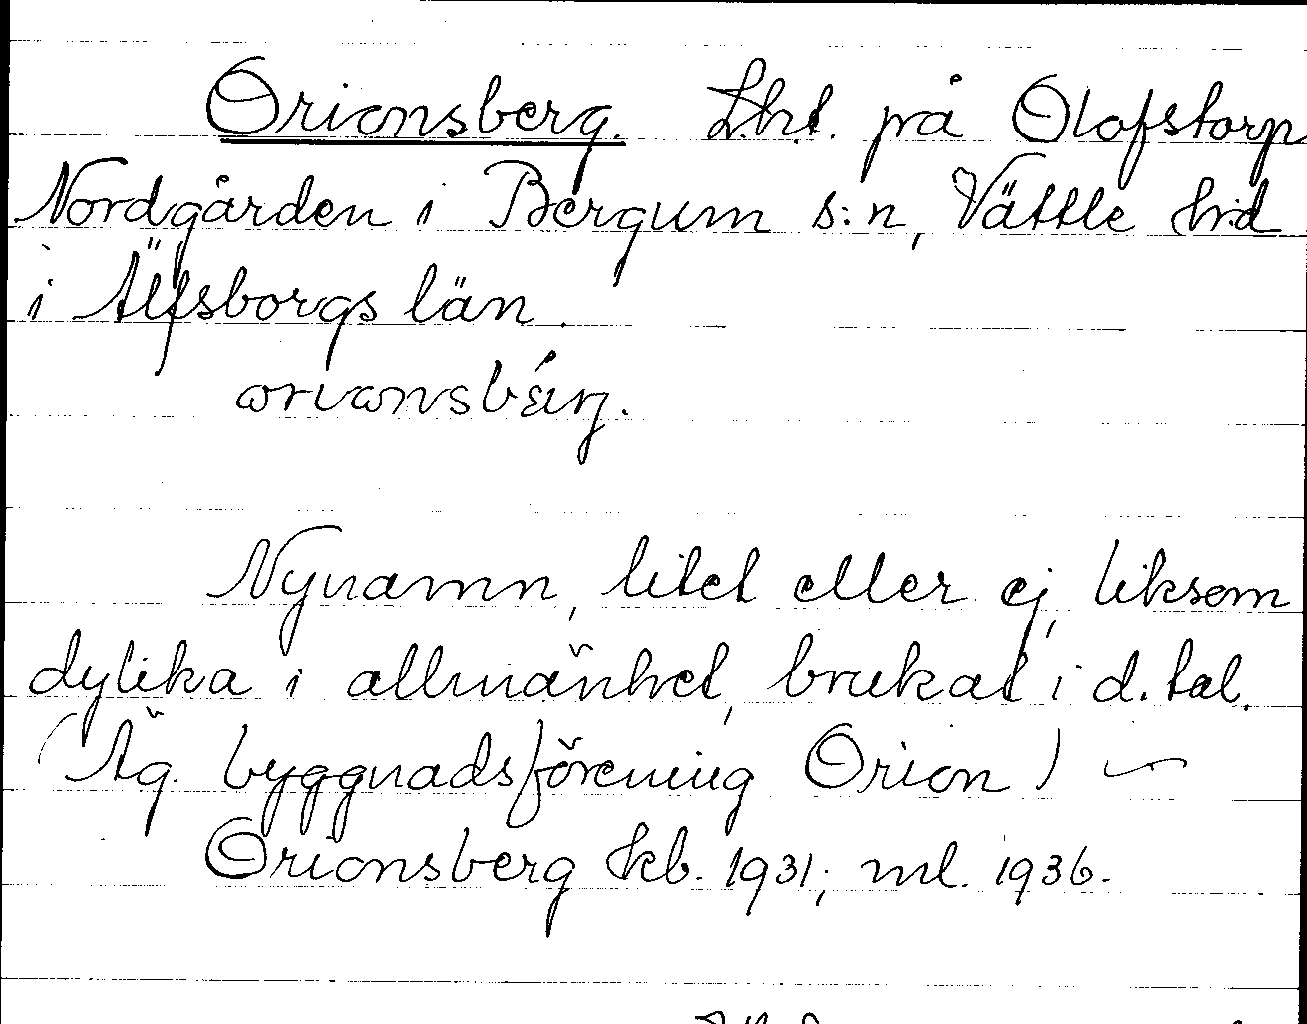 Orionsberg. Lht. på Olofstorp
Nordgården i Bergum s:n, Vättle h:d
i Älfsborgs län.
Nynamn, litet eller ej, liksom
dylika i allmänhet, brukat i d. tal.
(Äg. byggnadsförening Orion) ~
Orionsberg kb. 1931; ml. 1936.